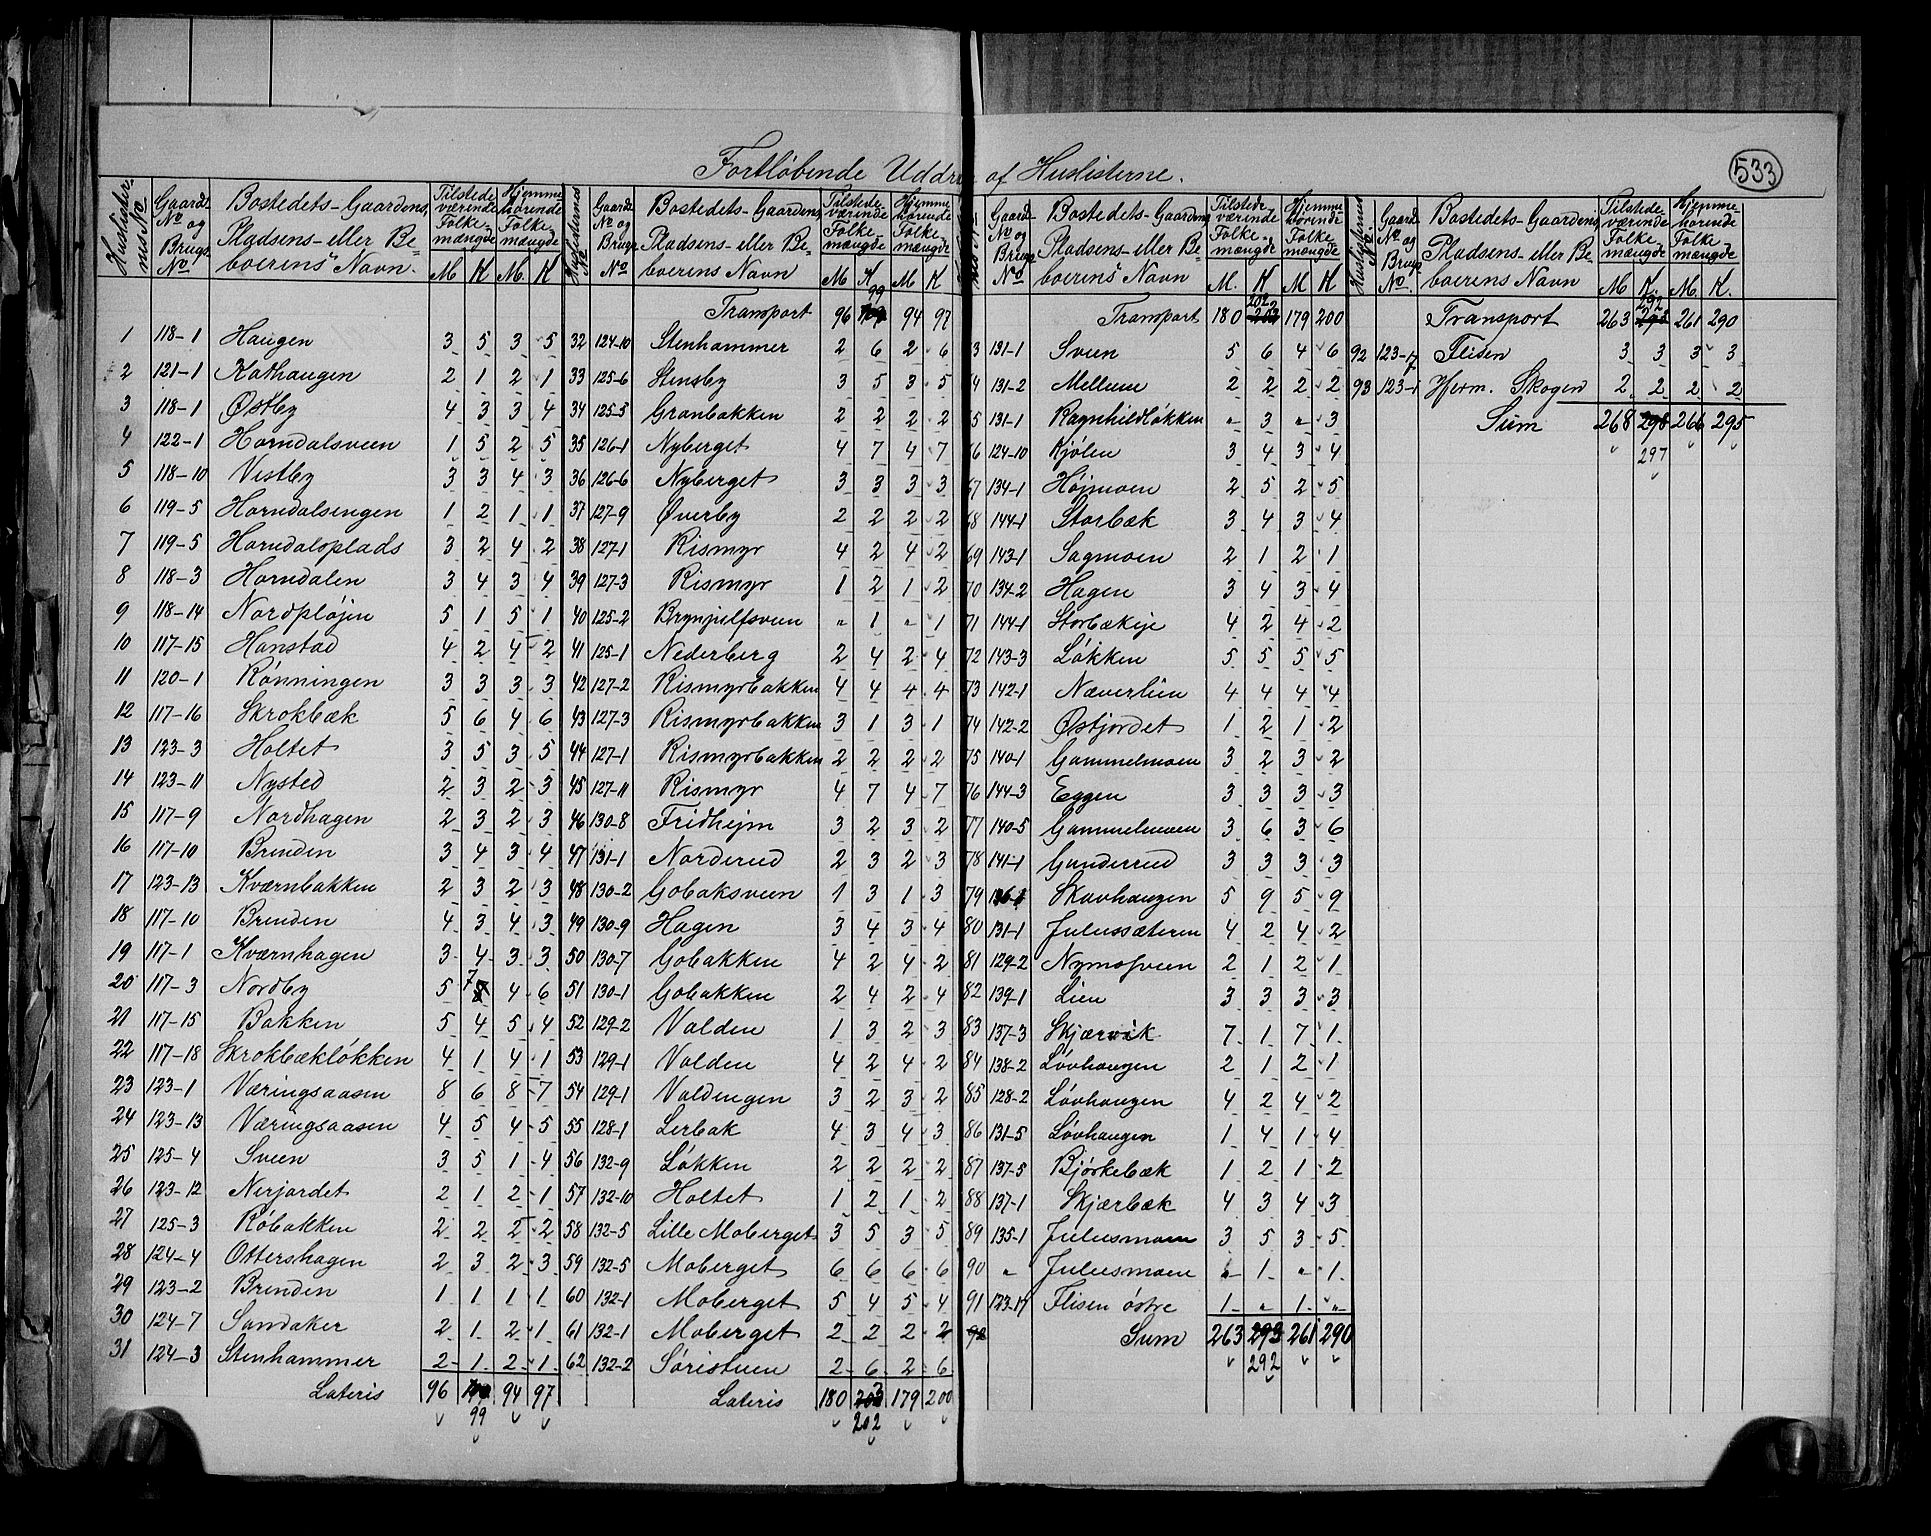 533
Fortløbende Uddrag af Huslisterne.
Huslisternes No. Gaards No og Brugs No. Bostedets-Gaardens, Pladsens- eller Beboerens Navn. Tilstedeværende Folkemængde M K Hjemmehørende Folkemængde M. K
1 118-1 Haugen 3 5 3 5
2 121-1 Kathaugen 2 1 2 1
3 118-1 Østby 4 3 3 4
4 122-1 Horndalsveen 1 5 2 5
5 118-10 Vestby 3 3 4 3
6 119-5 Horndalsengen 1 2 1 1
7 119-5 Horndalsplads 3 2 4 2
8 118-3 Horndalen 3 4 3 4
9 118-14 Nordpløjen 5 1 5 1
10 117-15 Hanstad 4 2 4 2
11 120-1 Rønningen 3 3 3 3
12 117-16 Skrokbæk 5 6 4 6
13 123-3 Holtet 3 5 3 5
14 123-11 Nysted 2 3 2 3
15 117-9 Nordhagen 2 3 2 3
16 117-10 Brenden 3 4 3 4
17 123-13 Kværnbakken 2 3 2 3
18 117-10 Brenden 4 3 4 3
19 117-1 Kværnhagen 3 4 3 3
20 117-3 Nordby 5 7 4 6
21 117-15 Bakken 5 4 5 4
22 117-18 Skrokbækløkken 4 1 4 1
23 123-1 Væringsaasen 8 6 8 7
24 123-13 Væringsaasen 4 5 4 5
25 125-4 Sveen 3 5 1 4
26 123-12 Nerjordet 2 1 2 1
27 125-3 Robakken 2 2 2 2
28 124-4 Ottershagen 2 3 2 3
29 123-2 Brenden 1 1 1 1
30 124-7 Sandaker 2 1 2 1
31 124-3 Stenhammer 2 1 2 1
Lateris 96 94 97
99
Huslisternes No Gaards No og Brugs No Bostedets-Gaardens, Pladsens- eller Beboerens Navn Tilstedeværende Folkemængde M K Hjemmehørende Folkemængde M K
Transport 96 99 94 97
32 124-10 Stenhammer 2 6 2 6
33 125-6 Stensby 3 5 3 5
34 125-5 Granbakken 2 2 2 2
35 126-1 Nyberget 4 7 4 7
36 126-6 Nyberget 3 3 3 3
37 127-9 Øverby 2 2 2 2
38 127-1 Rismyr 4 2 4 2
39 127-3 Rismyr 1 2 1 2
40 125-2 Brynjulfsveen " 1 " 1
41 125-1 Nederberg 2 4 2 4
42 127-2 Rismyrbakken 4 4 4 4
43 127-3 Rismyrbakken 3 1 3 1
44 127-1 Rismyrbakken 2 2 2 2
45 127-11 Rismyr 4 7 4 7
46 130-8 Fridhejm 3 2 3 2
47 131-1 Norderud 2 3 2 3
48 130-2 Gobaksveen 1 3 1 3
49 130-9 Hagen 3 4 3 4
50 130-7 Gobakken 4 2 4 2
51 130-1 Gobakken 2 4 2 4
52 129-2 Volden 1 3 2 3
53 129-1 Volden 4 2 4 2
54 129-1 Voldengen 3 2 3 2
55 128-1 Lerbak 4 3 4 3
56 132-9 Løkken 2 2 2 2
57 132-10 Holtet 1 2 1 2
58 132-5 Lille Moberget 3 5 3 5
59 132-5 Moberget 6 6 6 6
60 132-1 Moberget 5 4 5 4
61 132-1 Moberget 2 2 2 2
62 132-2 Søristuen 2 6 2 6
Lateris 180 203 179 200
202
Gaards No og Brugs No Bostedets-Gaardens Pladsens- eller Beboerens Navn Tilstedeværende Folkemængde M. K Hjemmehørende Folkemængde M K
Transport 180 202 179 200
3 131-1 Sveen 5 6 4 6
4 131-2 Mellum 2 2 2 2
5 131-1 Ragnhildløkken " 3 " 3
6 124-10 Kjølen 3 4 3 4
67 134-1 Højmoen 2 5 2 5
68 144-1 Storbæk 3 4 3 4
69 143-1 Sagmoen 2 1 2 1
70 134-2 Hagen 3 4 3 4
71 144-1 Storbækeje 4 2 4 2
72 143-3 Løkken 5 5 5 5
73 142-1 Næverlien 4 4 4 4
74 142-2 Østjordet 1 2 1 2
75 140-1 Gammelmoen 3 2 3 2
76 144-3 Eggen 3 3 3 3
77 140-5 Gammelmoen 3 6 3 6
78 141-1 Gunderud 3 3 3 3
79 Skavhaugen 5 9 5 9
80 131-1 Julussæteren 4 2 4 2
81 129-2 Nymosveen 2 1 2 1
82 139-1 Lien 3 3 3 3
83 137-3 Skjærvik 7 1 7 1
84 138-2 Løvhaugen 2 1 2 1
85 128-2 Løvhaugen 4 2 4 2
86 131-5 Løvhaugen 1 4 1 4
87 137-5 Bjørkebæk 1 2 1 2
88 137-1 Skjærbæk 4 3 4 3
89 135-1 Julusmoen 3 5 3 5
90 " Julusmoen " 1 " 1
91 123-17 Flisen østre 1 " 1 "
92 Sum 263 293 261 290
292
Huslisternes No. Gaards No og Brugs No. Bostedets-Gaardens, Pladsens- eller Beboerens Navn Tilstedeværende Folkemængde M K. Hjemmehørende Folkemængde M. K.
Transport 263 292 261 290
92 123-17 Flisen 3 3 3 3
93 123-1 Herm. Skogen 2 2 2 2
Sum 268 298 266 295
297